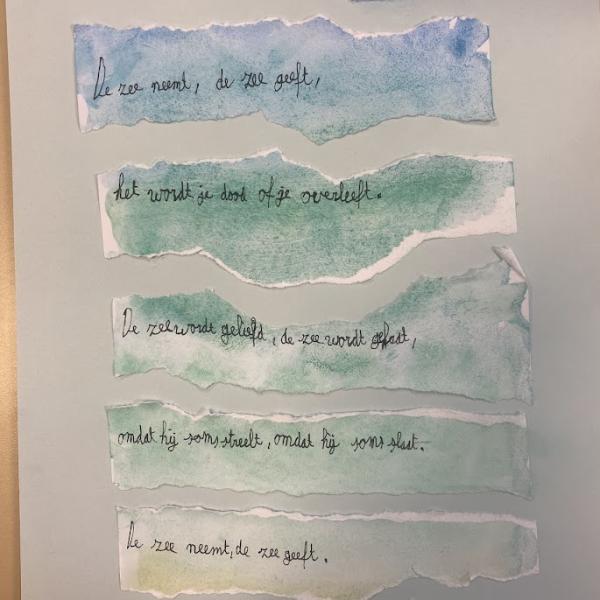 De zee neemt, de zee geeft,
het wordt je dood of je overleeft.
De zee wordt geliefd, de zee wordt gehaat,
omdat hij soms streelt, omdat hij soms slaat.
De zee neemt, de zee geeft.